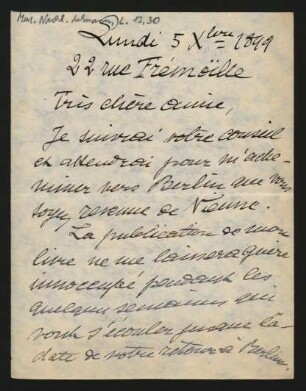 Mus. Nachl. Lehmann, L. 12,30
Lundi 5 Xbre 1899
22 rue Trémoïlle
Très chère amie,
Je suivrai votre conseil
et attendrai pour m'ache-
miner vers Berlin que vous
soyez revenue de Vienne.
La publication de mon
livre ne me laissera guère
innoccupé pendant les
quelques semaines qui
vont s'écouler jusque là-
date de votre retour à Berlin.